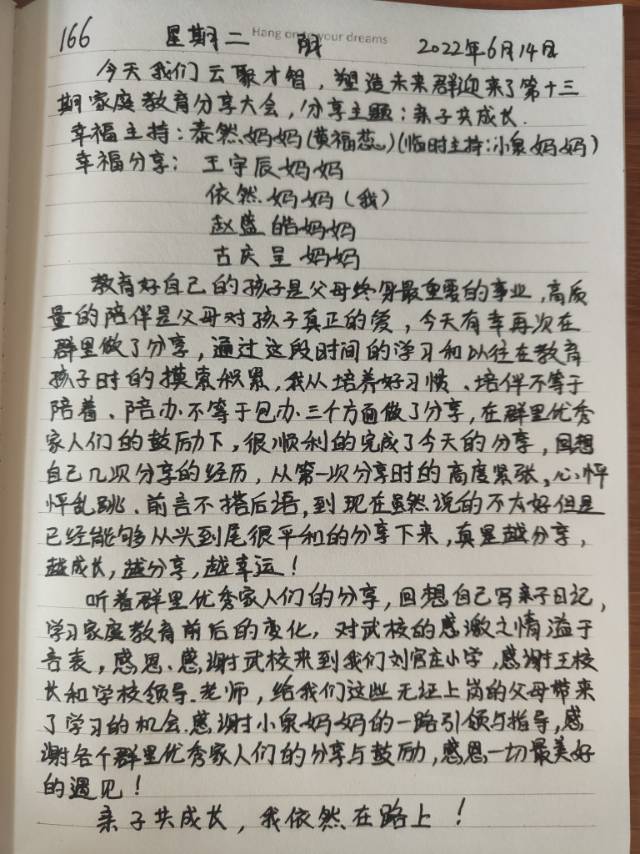 166 星期二 阴 2022年6月14日
Hang on to your dreams
今天我们云聚才智，塑造未来群迎来了第十三
期家庭教育分享大会，分享主题：亲子共成长.
幸福主持：泰然妈妈(黄福蕊)(临时主持:小泉妈妈)
幸福分享：王宇辰妈妈
依然妈妈（我）
赵盛皓妈妈
古庆呈妈妈
教育好自己的孩子是父母终身最重要的事业，高质
量的陪伴是父母对孩子真正的爱，今天有幸再次在
群里做了分享，通过这段时间的学习和以往在教育
孩子时的摸索积累，我从培养好习惯、培伴不等于
陪着、陪办不等于包办三个方面做了分享，在群里优秀
家人们的鼓励下，很顺利的完成了今天的分享，回想
自己几次分享的经历，从第一次分享时的高度紧张、心怦
怦乱跳、前言不搭后语，到现在虽然说的不太好但是
已经能够从头到尾很平和的分享下来，真是越分享，
越成长，越分享，越幸运！
听着群里优秀家人们的分享，回想自己写亲子日记，
学习家庭教育前后的变化，对武校的感激之情溢于
言表，感恩、感谢武校来到我们刘官庄小学，感谢王校
长和学校领导、老师，给我们这些无证上岗的父母带来
了学习的机会.感谢小泉妈妈的一路引领与指导，感
谢各个群里优秀家人们的分享与鼓励，感恩一切最美好
的遇见！
亲子共成长，我依然在路上！